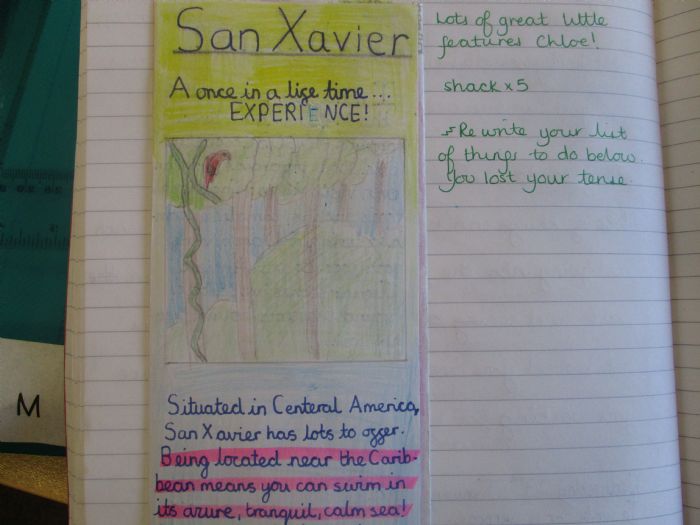 San Xavier
A once in a life time...
EXPERIENCE!
Situated in Centeral America,
San Xavier has lots to offer.
Being located near the Carib-
bean means you can swim in
its azure, tranquil, calm sea!
Lots of great little
features Chloe!
shack x 5
Re write your list
of things to do below.
You lost your tense.
M